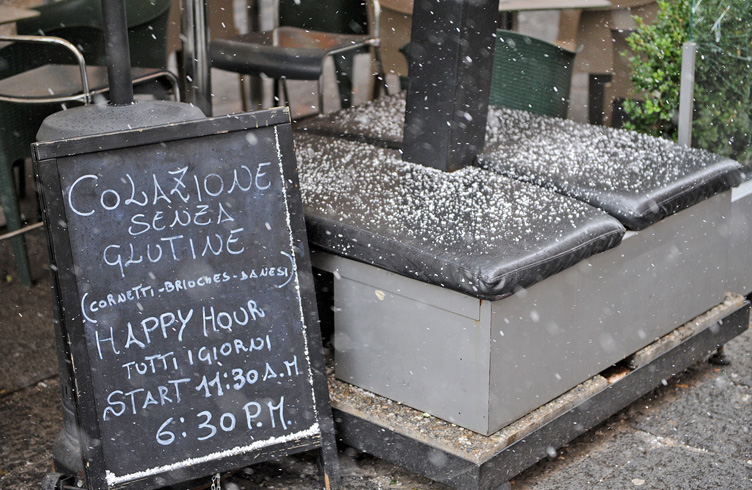 COLAZIONE
SENZA
GLUTINE
(CORNETTI-BRIOCHES-DANESI)
HAPPY HOUR
TUTTI I GIORNI
START 11:30 A.M
6:30 P.M.